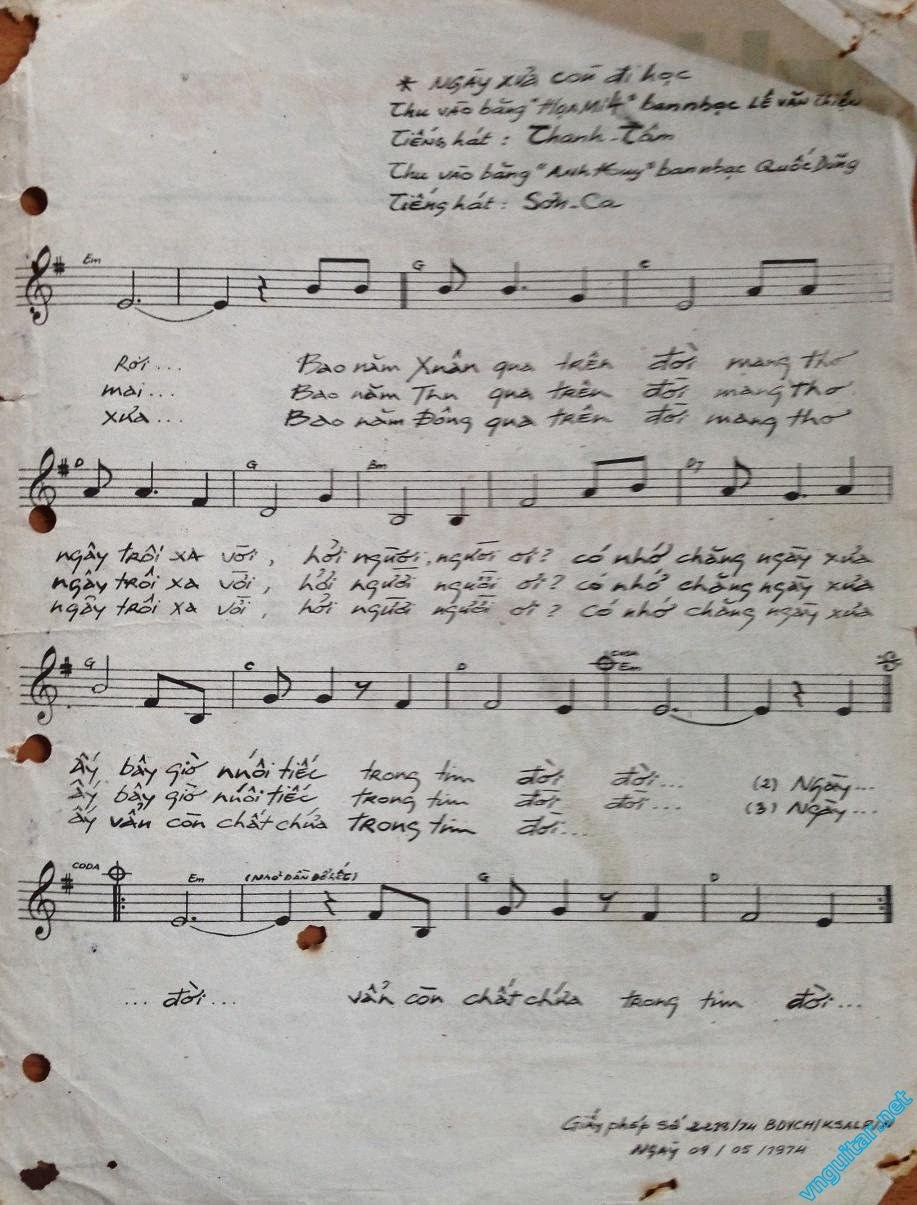 * NGÀY XƯA còn đi học
Thu vào băng "HỌA MI 4" ban nhạc LÊ VĂN THIỆN
Tiếng hát : Thanh - Tâm
Thu vào băng "Anh Huy" ban nhạc Quốc Dũng
Tiếng hát : Sơn - Ca
Em G C
Rơi ... Bao năm Xuân qua trên đời mang thơ
mai ... Bao năm Thu qua trên đời mang thơ
xưa ... Bao năm Đông qua trên đời mang thơ
D G Em D7
ngây trôi xa vời, hỡi người, người ơi? có nhớ chăng ngày xưa
ngây trôi xa vời, hỡi người người ơi? có nhớ chăng ngày xưa
ngây trôi xa vời, hỡi người người ơi? có nhớ chăng ngày xưa
G C D CODA Em
Ấy bây giờ nuối tiếc trong tim đời đời... (2) Ngày...
ấy bây giờ nuối tiếc trong tim đời đời... (3) Ngày...
ấy vẫn còn chất chứa trong tim đời...
CODA Em (NHỎ DẦN ĐỂ KẾT) G D
... đời... vẫn còn chất chứa trong tim đời...
Giấy phép số /74 BDVCH/KSALP/N
NGÀY 09 / 05 / 1974
vnguitar.net